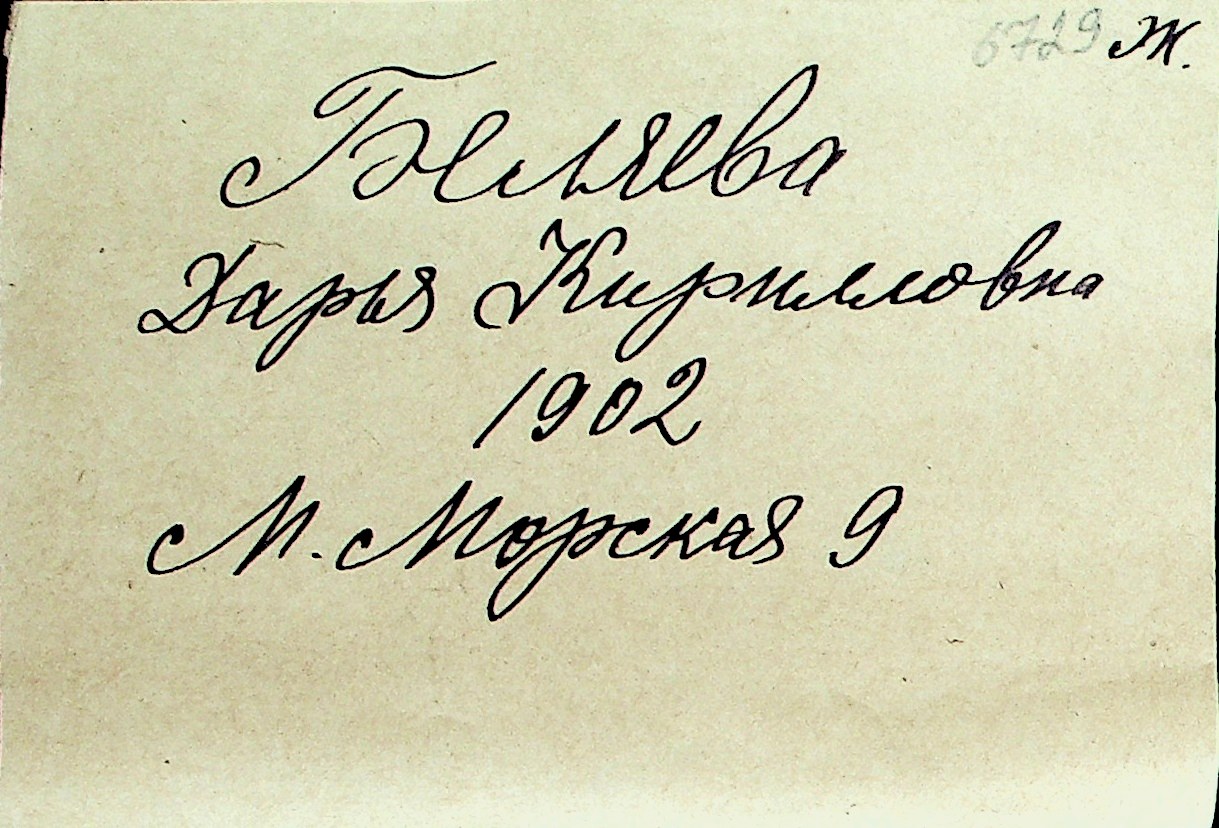 6729 Ж.
Беляева
Дарья Кирилловна
1902
М. Морская 9